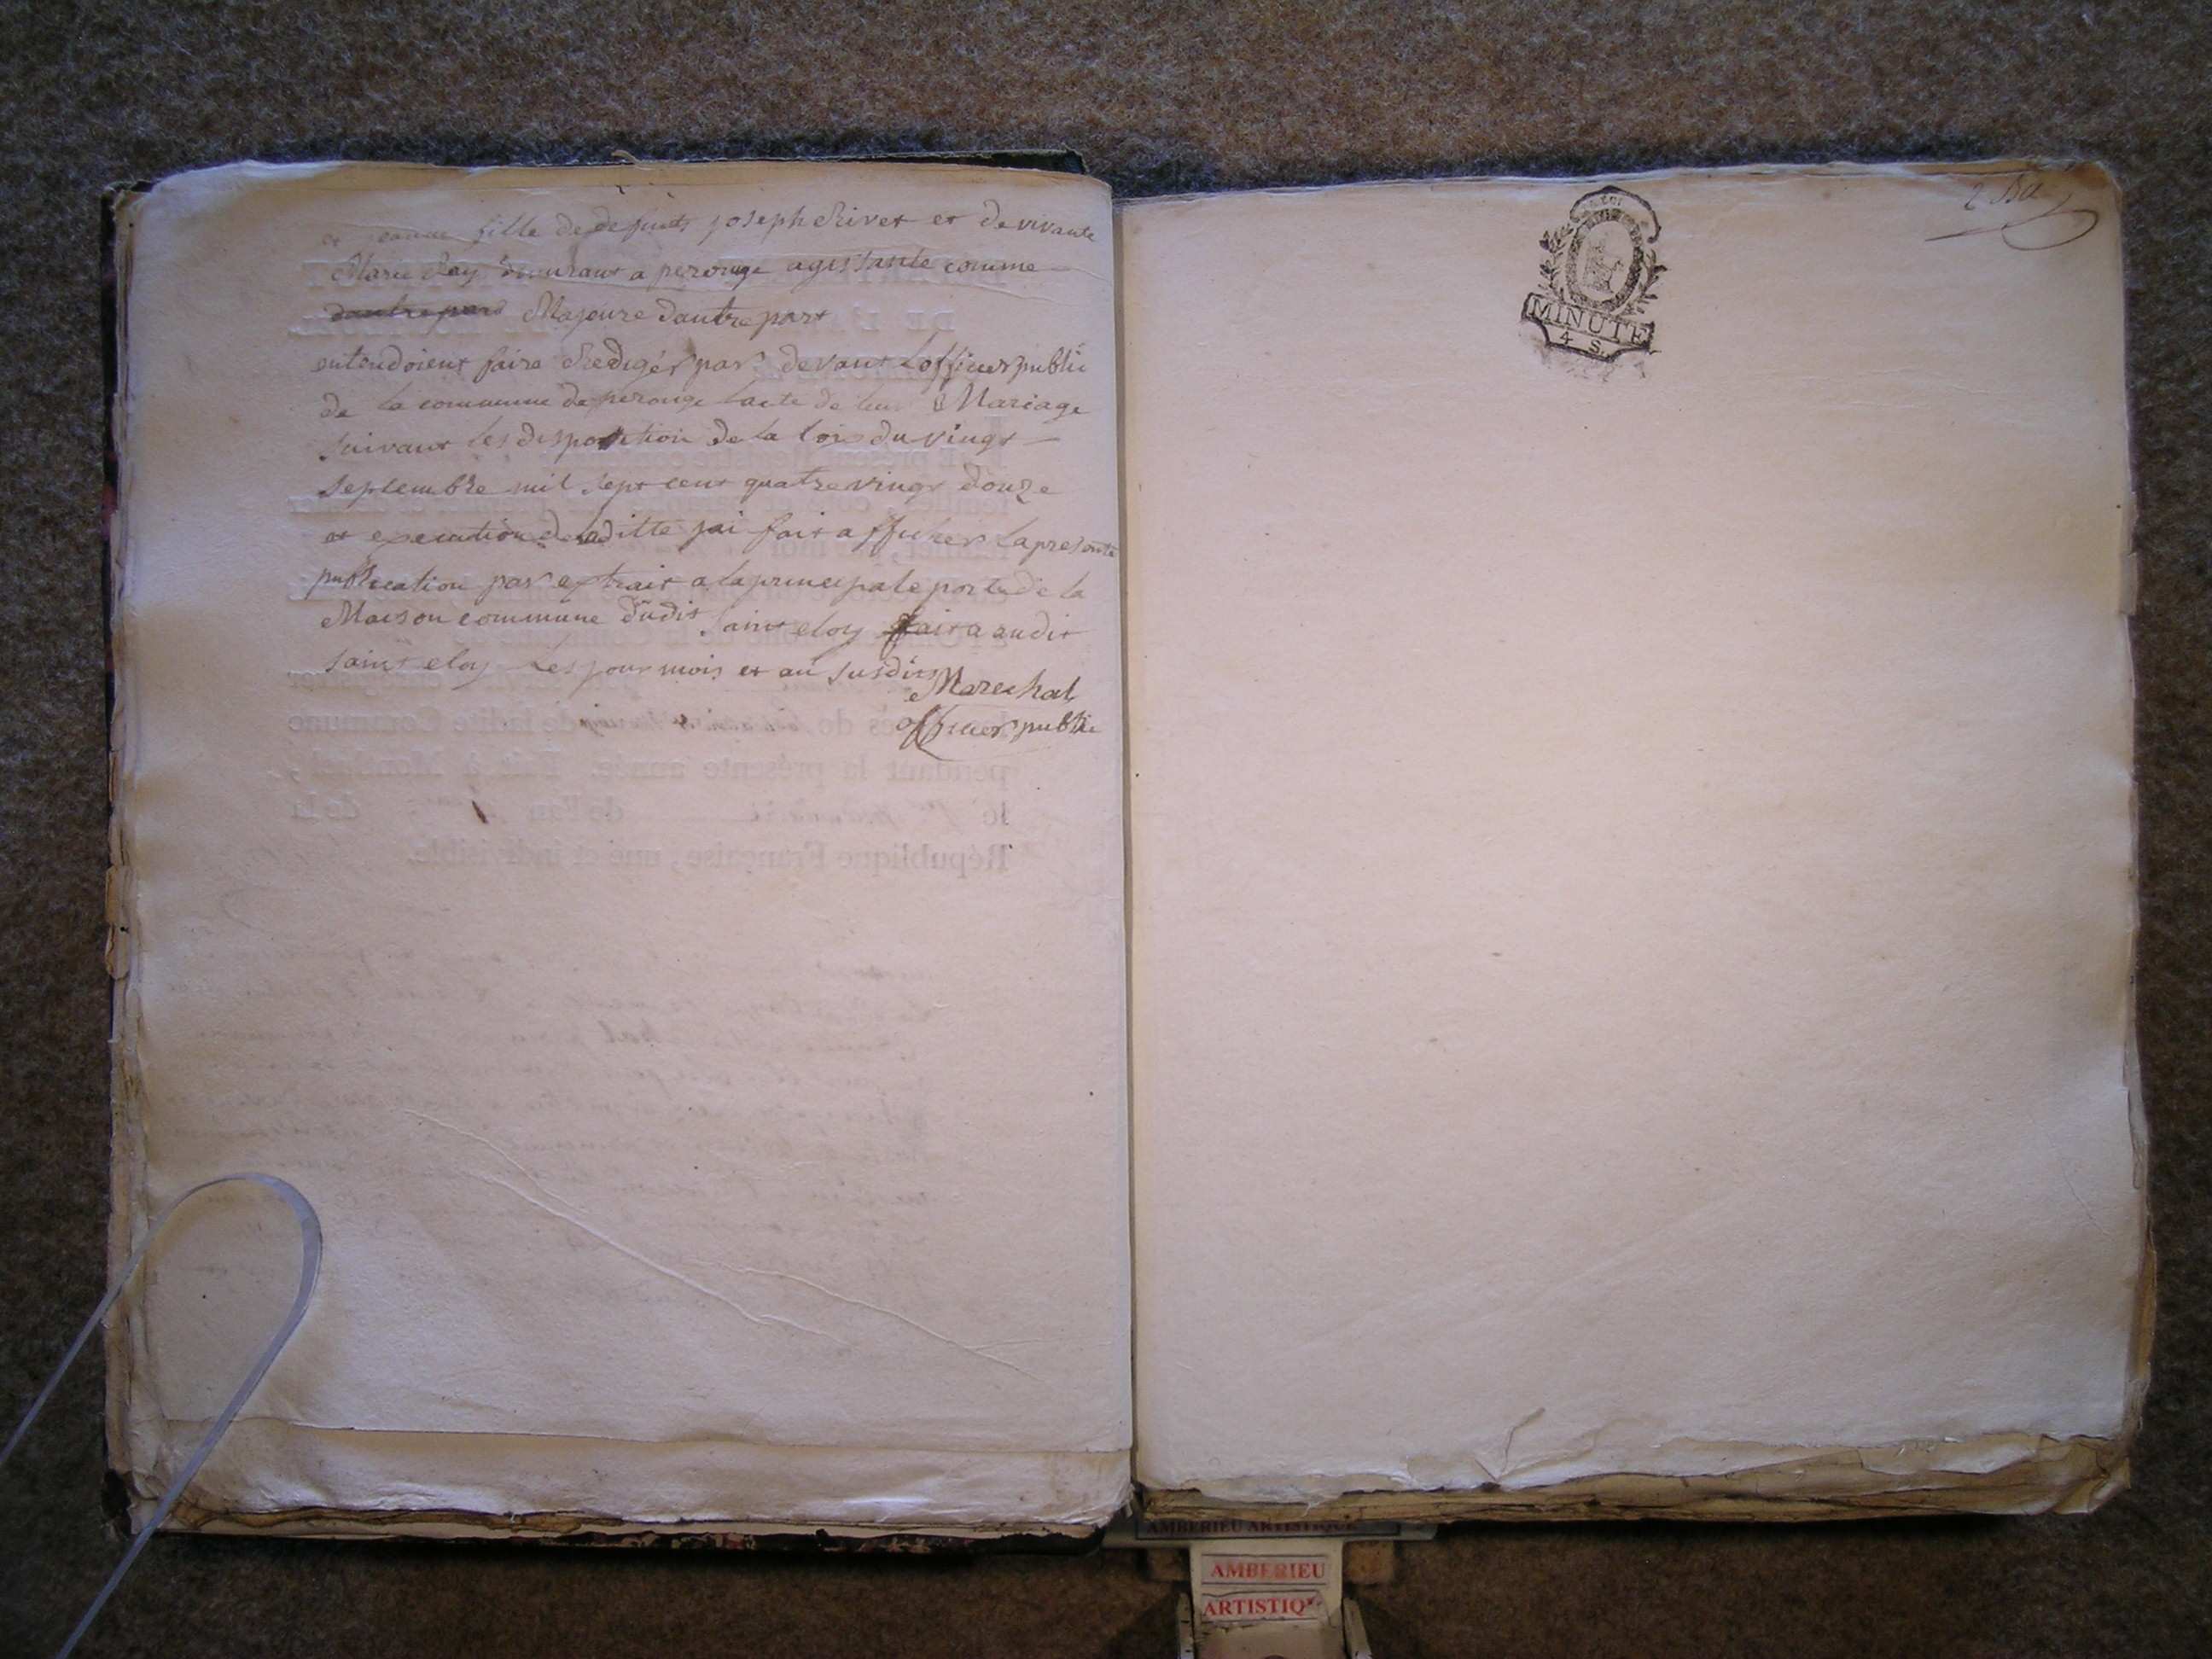 et jeanne fille de defunts joseph Rivet et de vivante
Marie Ray demurant a perouge agissante comme
dautre part Majeure dautre part
entendoient faire Rediger par devant L officier public
de la commune de perouge lacte de leur Mariage
suivant les disposition de la loi du vingt
septembre mil sept cent quatre vingt douze
et execution de laditte jai fait afficher la presente
publication par extrait a la principale porte de la
Maison commune dudit saint eloy fait a audit
saint eloy Les jour mois et an susdits
Marechal
officier public
MINUTE
4 S.
AMBERIEU ARTISTIQUE
AMBERIEU
ARTISTIQ